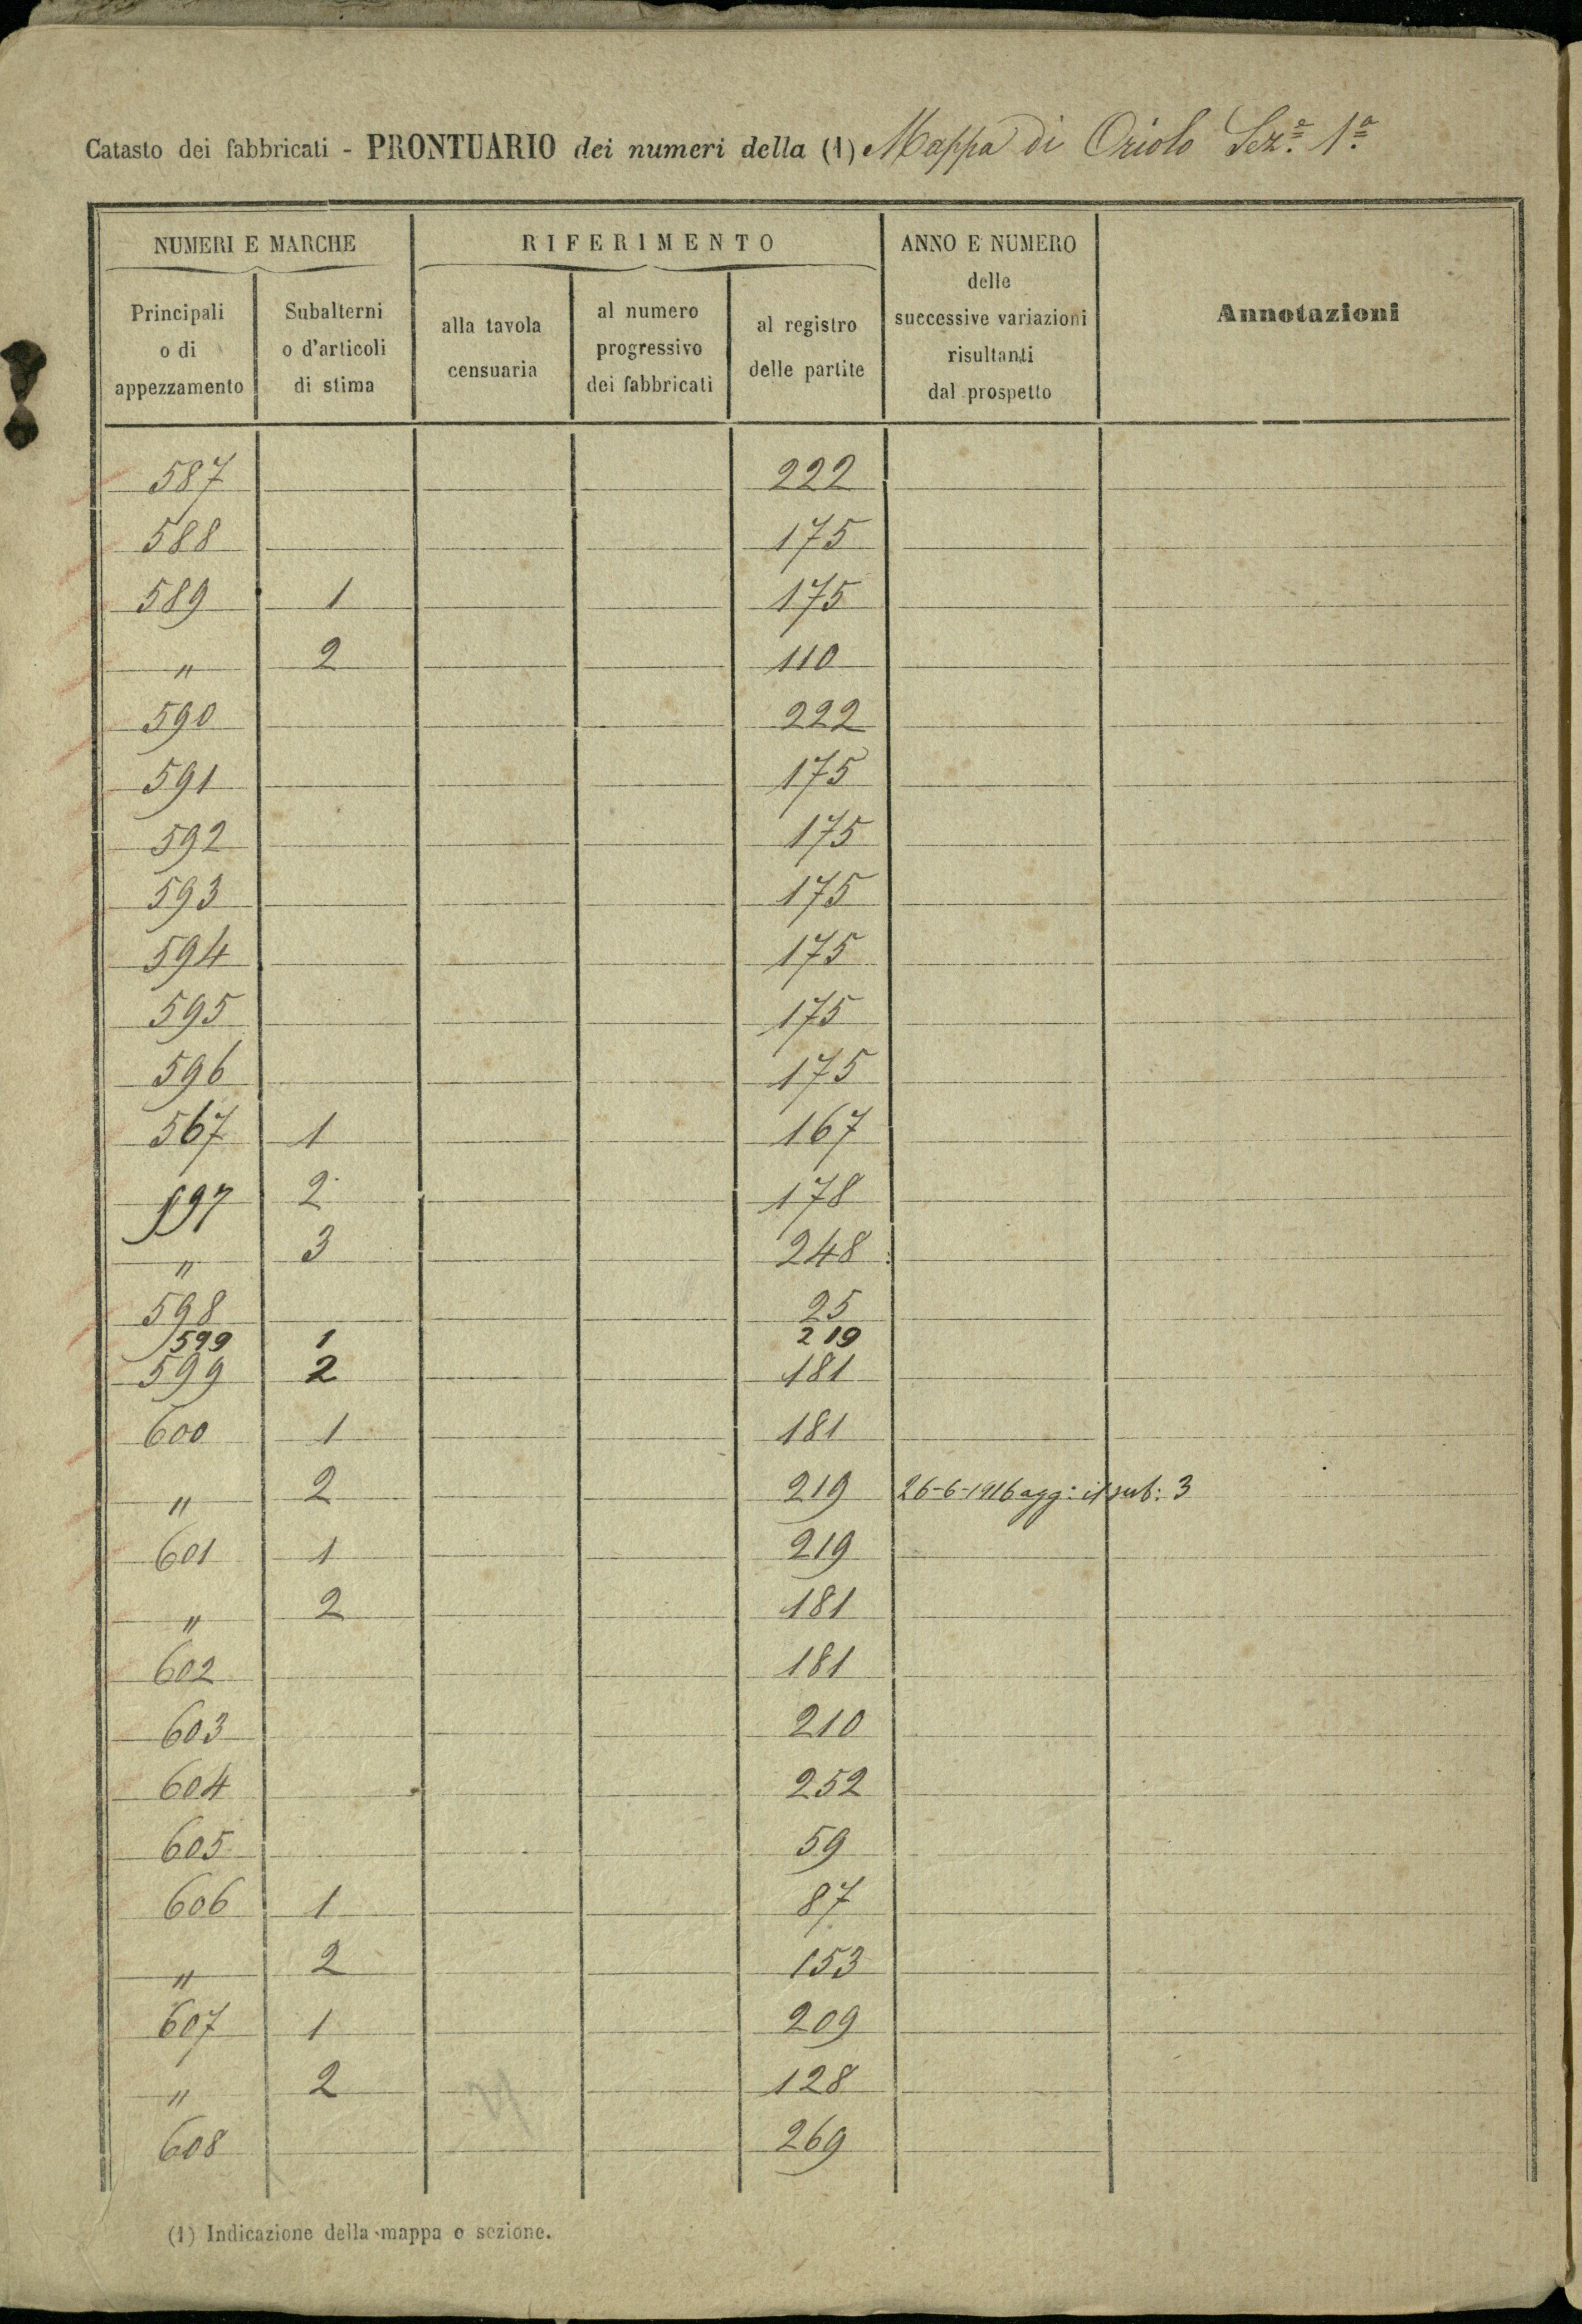 Catasto dei fabbricati - PRONTUARIO dei numeri della (1) Mappa di Oriolo Sez.ª 1.ª
NUMERI E MARCHE
Principali
o di
appezzamento
Subalterni
o d'articoli
di stima
RIFERIMENTO
alla tavola
censuaria
al numero
progressivo
dei fabbricati
al registro
delle partite
ANNO E NUMERO
delle
successive variazioni
risultanti
dal prospetto
Annotazioni
587 222
588 175
589 1 175
" 2 110
590 222
591 175
592 175
593 175
594 175
595 175
596 175
567 1 167
597 2 178
" 3 248
598 25
599 1 219
599 2 181
600 1 181
" 2 219 26-6-1916 agg: il sub: 3
601 1 219
" 2 181
602 181
603 210
604 252
605 59
606 1 87
" 2 153
607 1 209
" 2 128
608 269
(1) Indicazione della mappa o sezione.